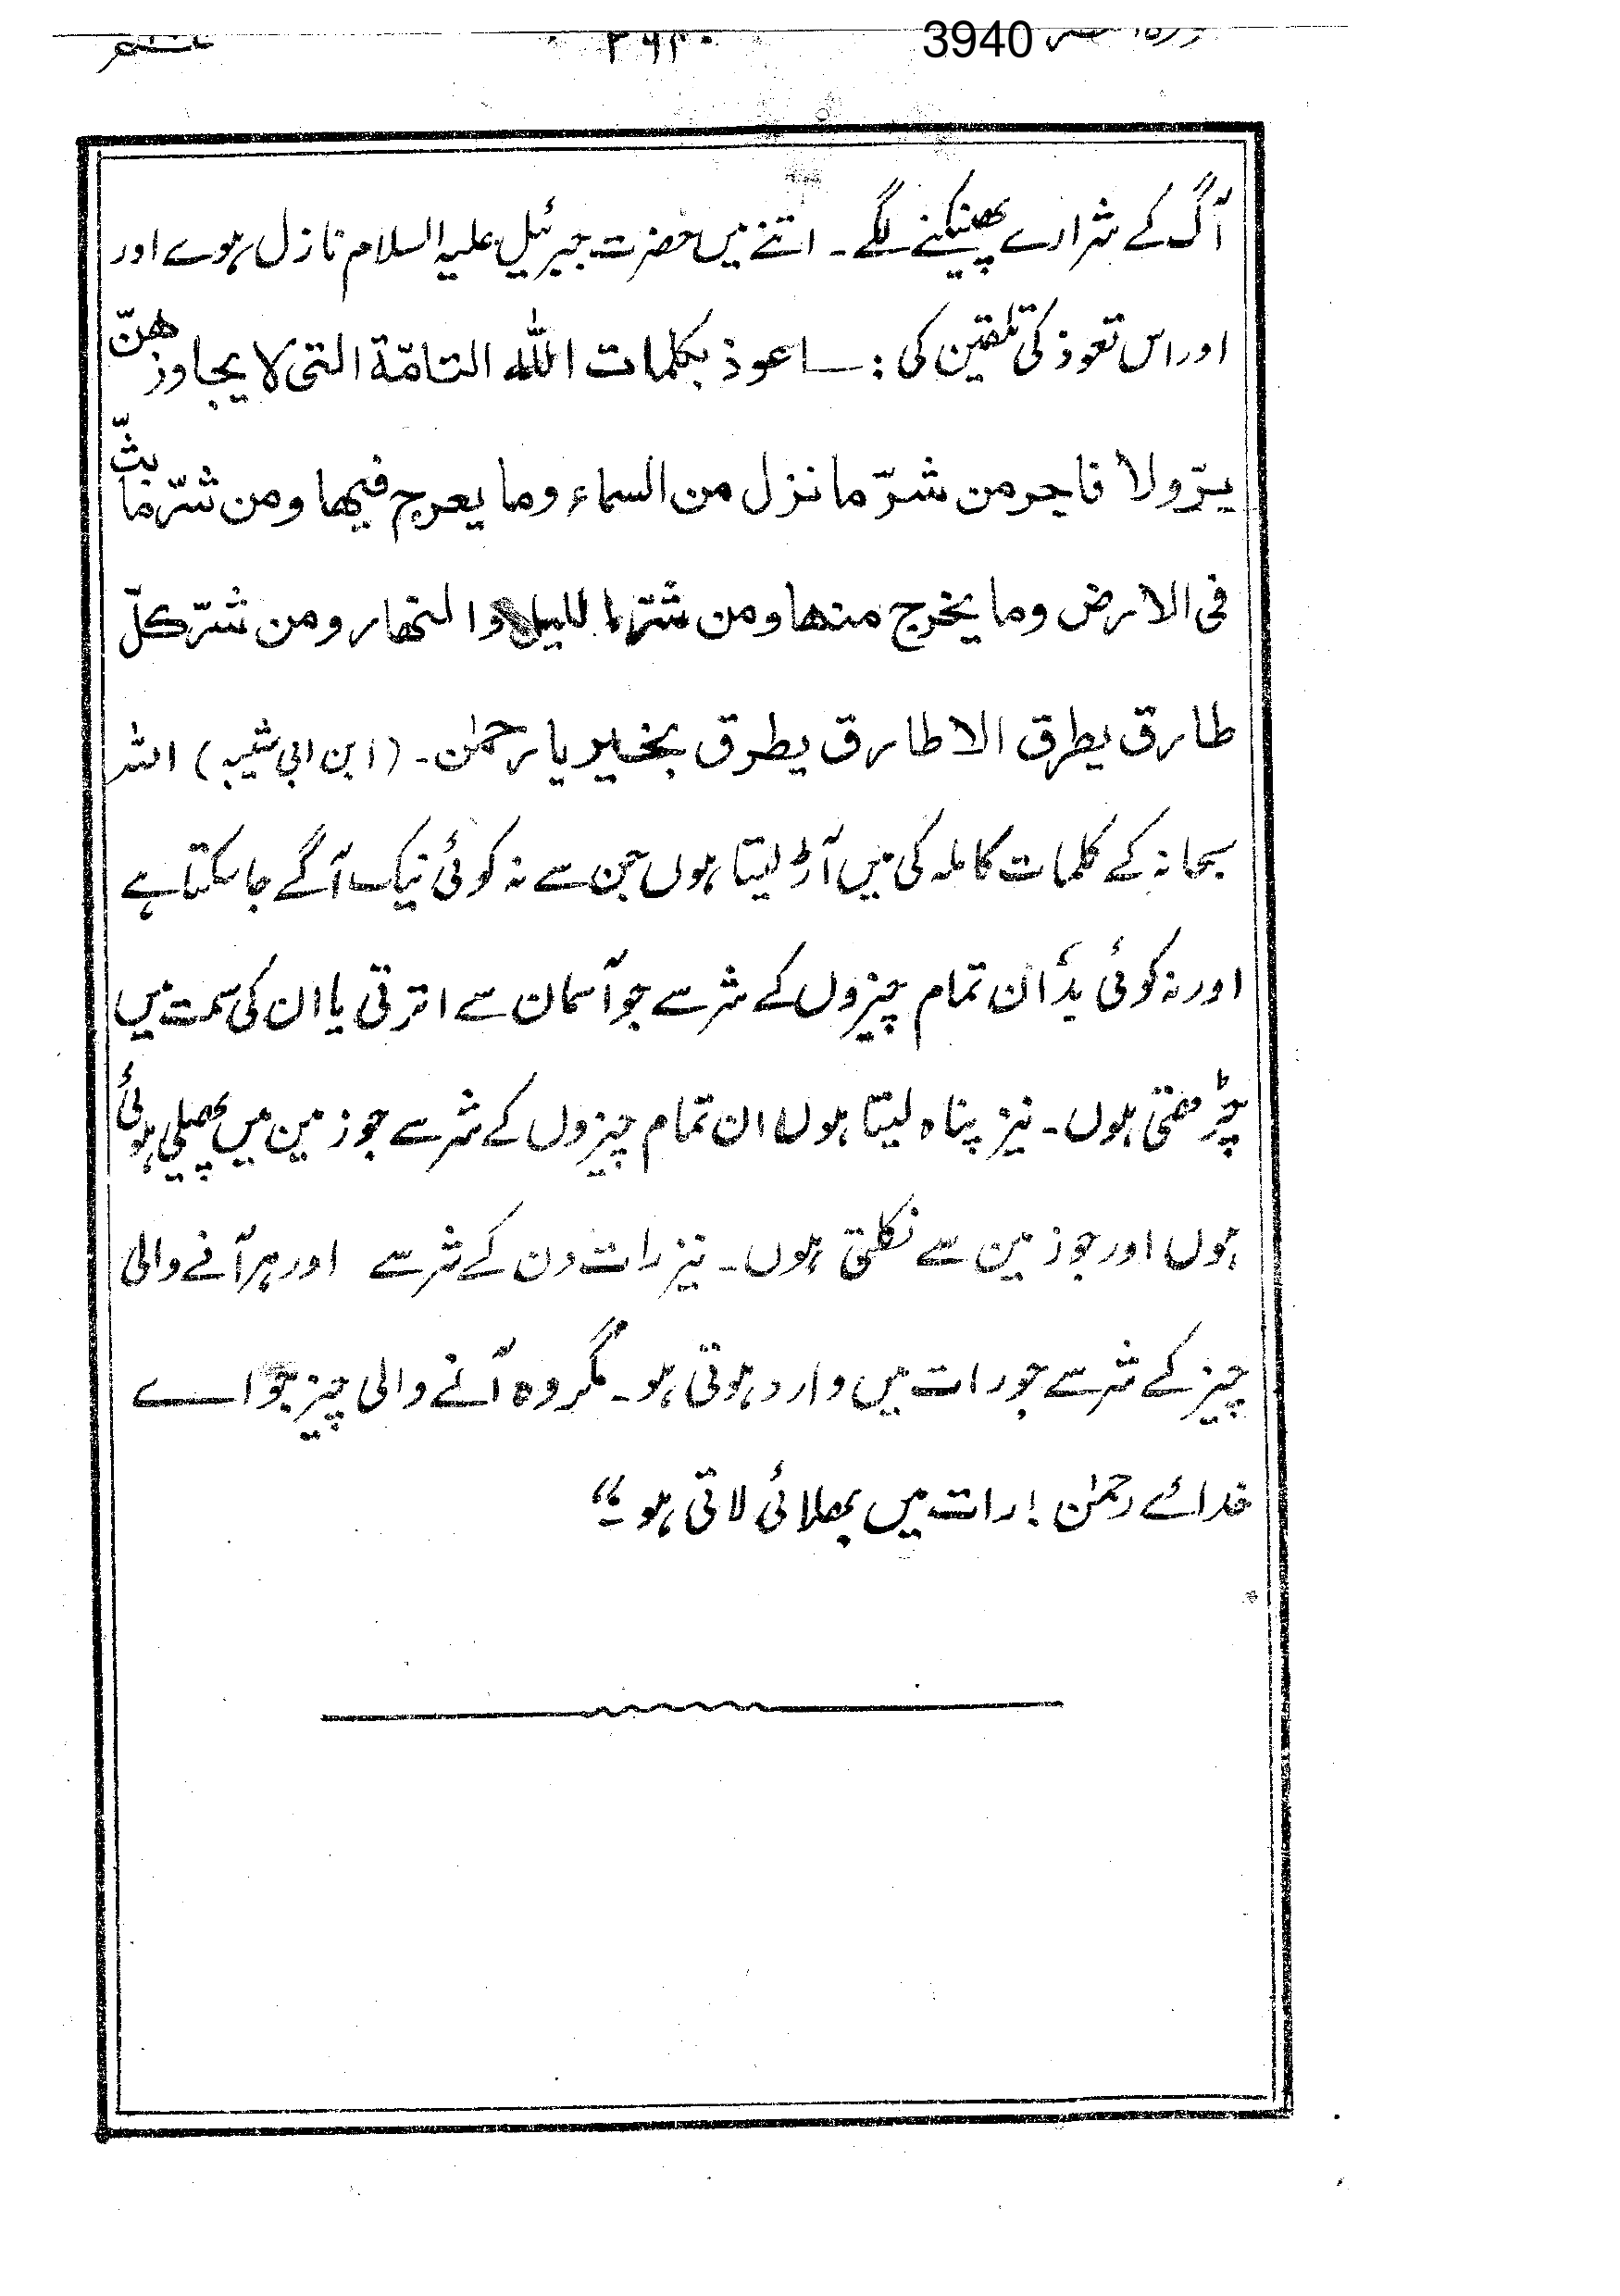 3940
آگ کے شرارے پھینکنے لگے۔ اتنے میں حضرت جبرئیل علیہ السلام نازل ہوے اور
اور اس تعوذ کی تلقین کی :ــ اعوذ بکلمات اللہ التامّۃ التی لا یجاوزھنّ
برّ ولا فاجر من شرّ ما نزل من السماء وما یعرج فیھا ومن شرّ ما بثّ
فی الارض وما یخرج منھا ومن شرّ اللیل والنھار ومن شرّ کلّ
طارق یطرق الا طارق یطرق بخیر یا رحمٰن۔ (ابن ابی شیبہ) اللہ
سبحانہ کے کلمات کاملہ کی میں آڑ لیتا ہوں جن سے نہ کوئی نیک آگے جا سکتا ہے
اور نہ کوئی بد، ان تمام چیزوں کے شر سے جو آسمان سے اترتی یا ان کی سمت میں
چڑھتی ہوں۔ نیز پناہ لیتا ہوں ان تمام چیزوں کے شر سے جو زمین میں پھیلی ہوئی
ہوں اور جو زمین سے نکلتی ہوں۔ نیز رات دن کے شر سے اور ہر آنے والی
چیز کے شر سے جو رات میں وارد ہوتی ہو۔ مگر وہ آنے والی چیز جو اے
خدائے رحمٰن ! رات میں بھلائی لاتی ہو۔“